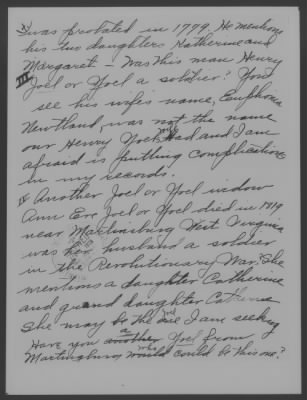 was probated in 1779. He mentions
his two daughters Katherine and
Margaret - Was this man Henry
III Joel or Yoel a soldier? You
see his wife's name, Euphema
Newtland, was not the name
our Henry Yoel's wife had and I am
afraid is putting complications
in my records.
IV Another Joel or Yoel widow
Ann Eve Joel or Yoel died in 1819
near Martinsburg West Virginia
was her husband a soldier
in the Revolutionary War? She
mentions a daughter Catherine
and grand daughter Catherine
She may be the one I am seeking
Have you another Yoel from
Martinsburg who could be this one?